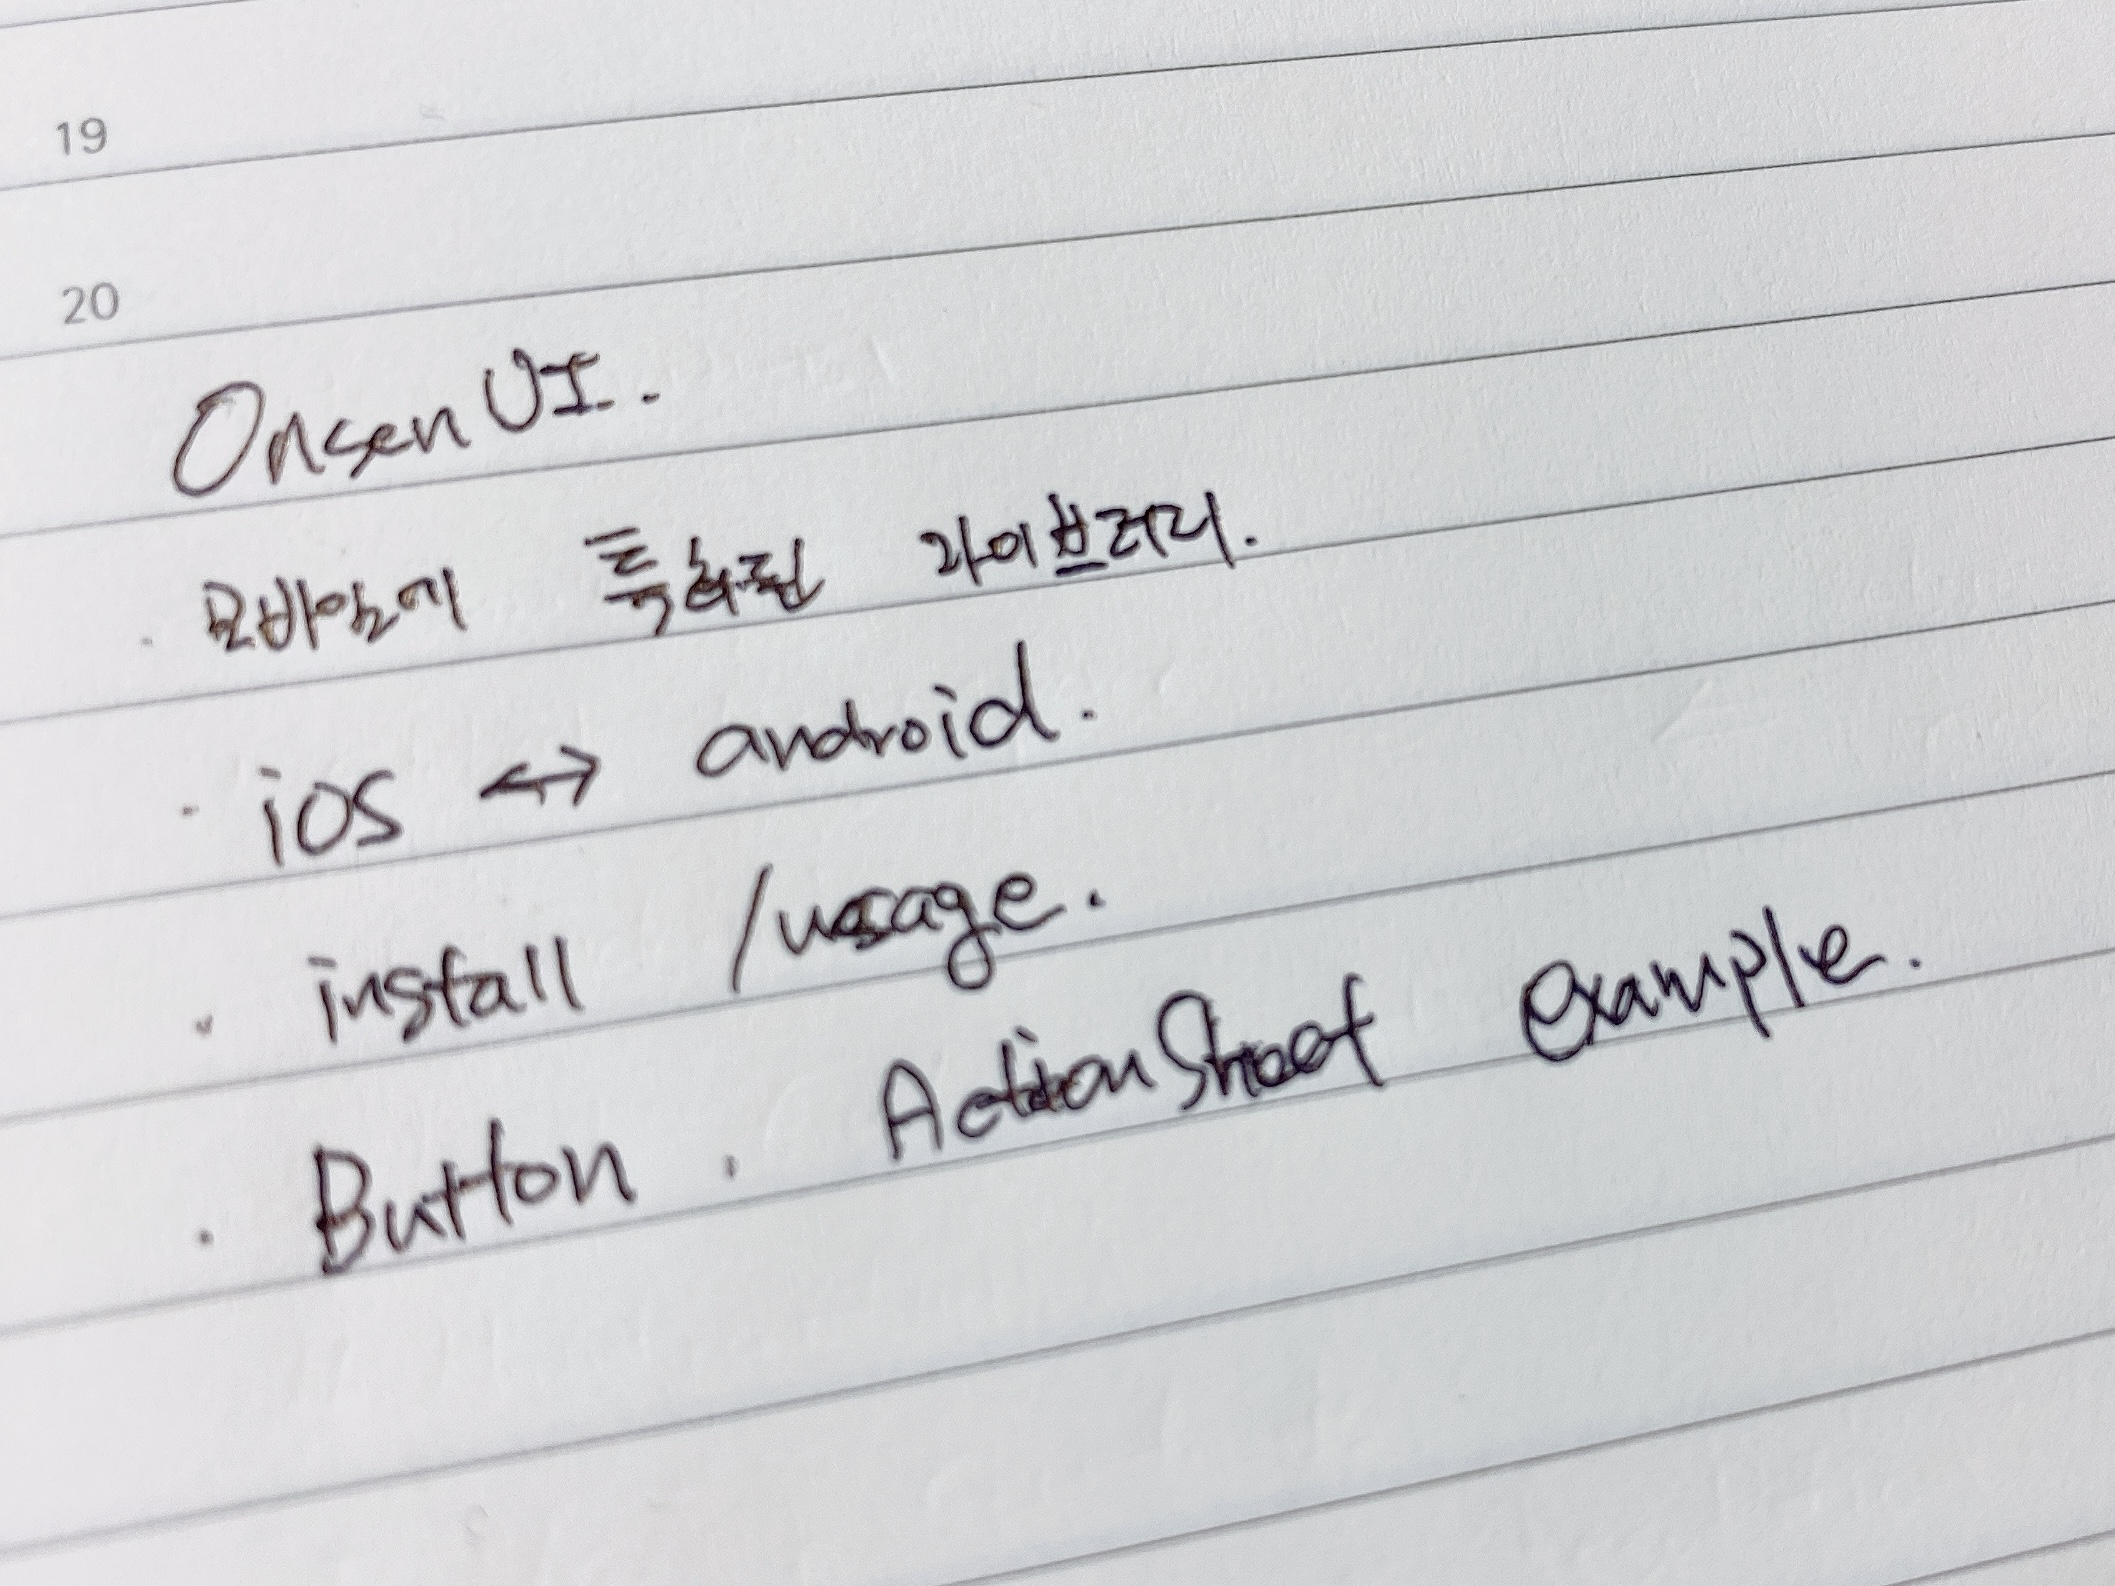 19
20
Onsen UI.
· 모바일에 특화된 라이브러리.
· iOS ↔ android.
· install /usage.
· Button . ActionSheet example.